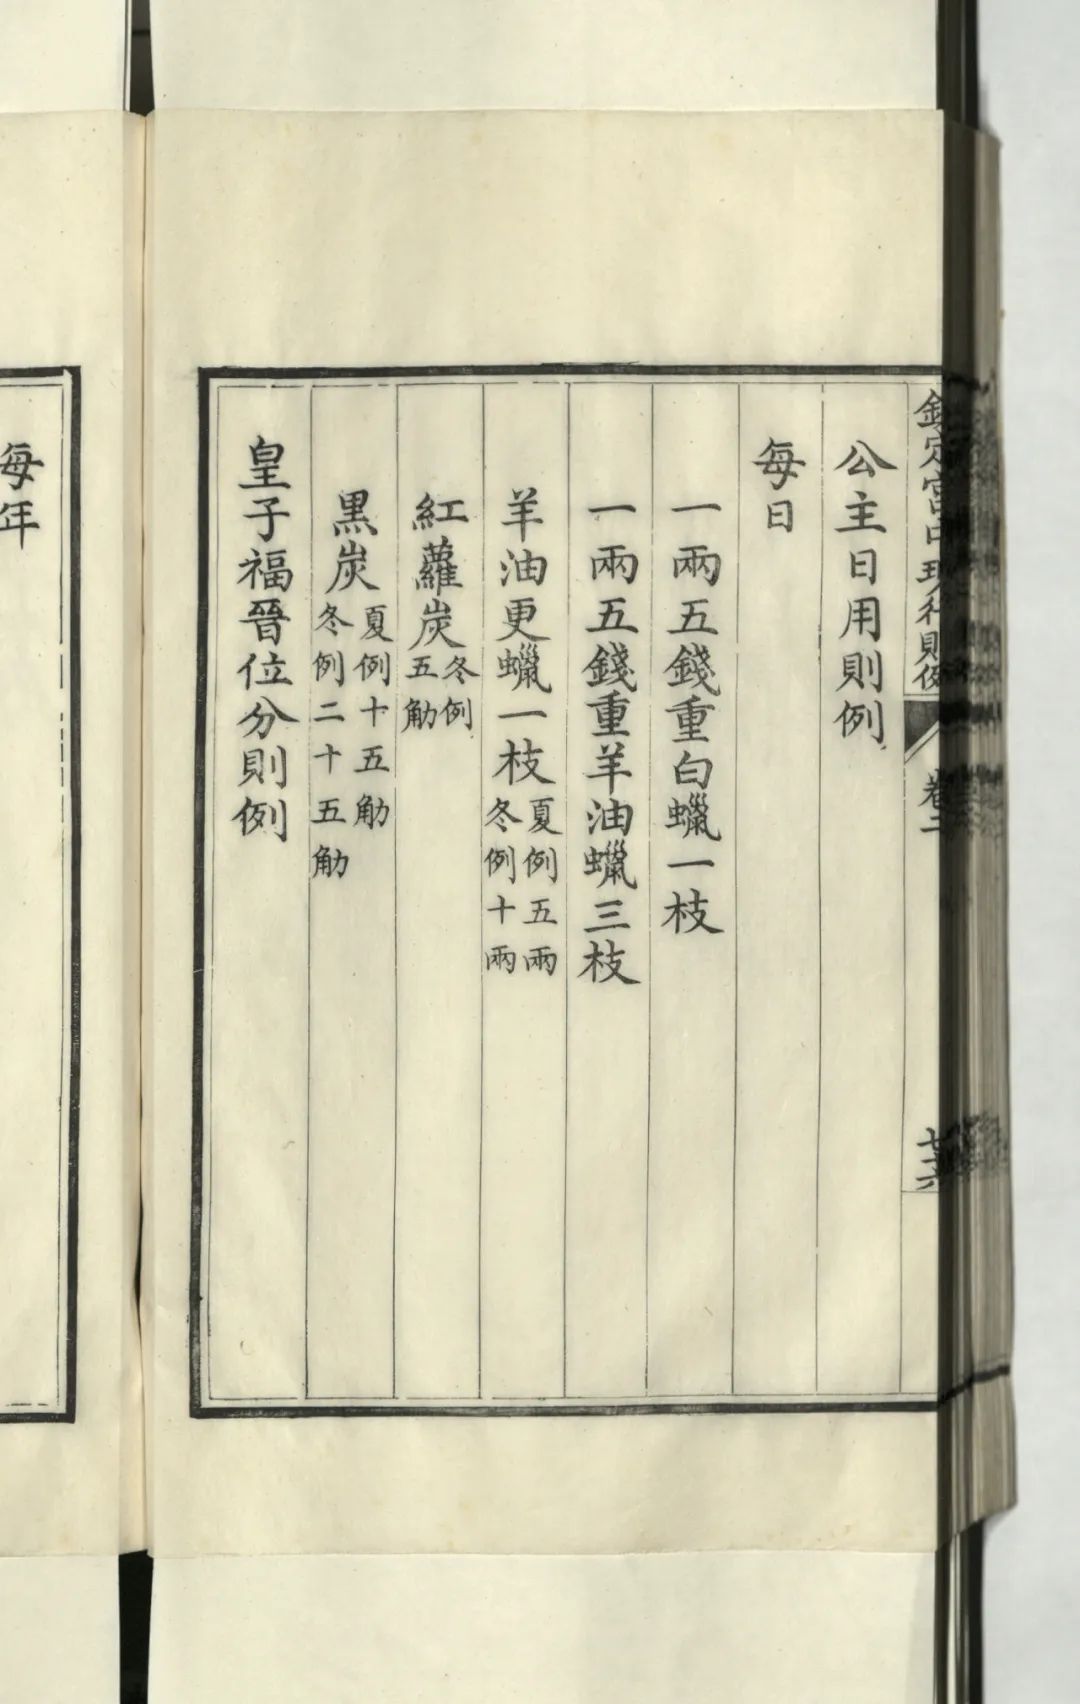 欽定宮中現行則例
卷二
七六
公主日用則例
每日
一兩五錢重白蠟一枝
一兩五錢重羊油蠟三枝
羊油更蠟一枝夏例五兩
冬例十兩
紅蘿炭冬例
五觔
黑炭夏例十五觔
冬例二十五觔
皇子福晉位分則例
每年